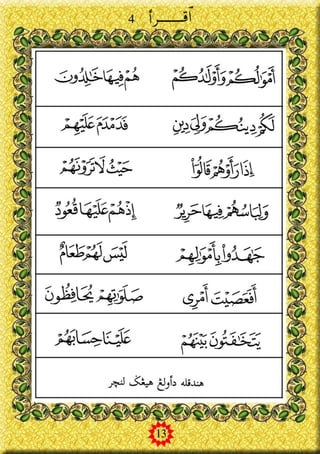 ٱقـــرأ 4
أَمْوَٰلُكُمْ وَأَوْلَٰدُكُمْ هُمْ فِيهَا خَٰلِدُونَ
لَكُمْ دِينُكُمْ وَلِيَ دِينِ فَدَمْدَمَ عَلَيْهِمْ
إِذَا رَأَوْهُمْ قَالُوٓا۟ حَيْثُ لَا تَرَوْنَهُمْ
وَلِبَاسُهُمْ فِيهَا حَرِيرٌ إِذْ هُمْ عَلَيْهَا قُعُودٌ
جَٰهَدُوا۟ بِأَمْوَٰلِهِمْ لَيْسَ لَهُمْ طَعَامٌ
أَفَعَصَيْتَ أَمْرِى صَلَوَٰتِهِمْ يُحَافِظُونَ
يَتَخَٰفَتُونَ بَيْنَهُمْ عَلَيْنَا حِسَابَهُمْ
هندقله دأولڠ هيڠݢ لنچر
13